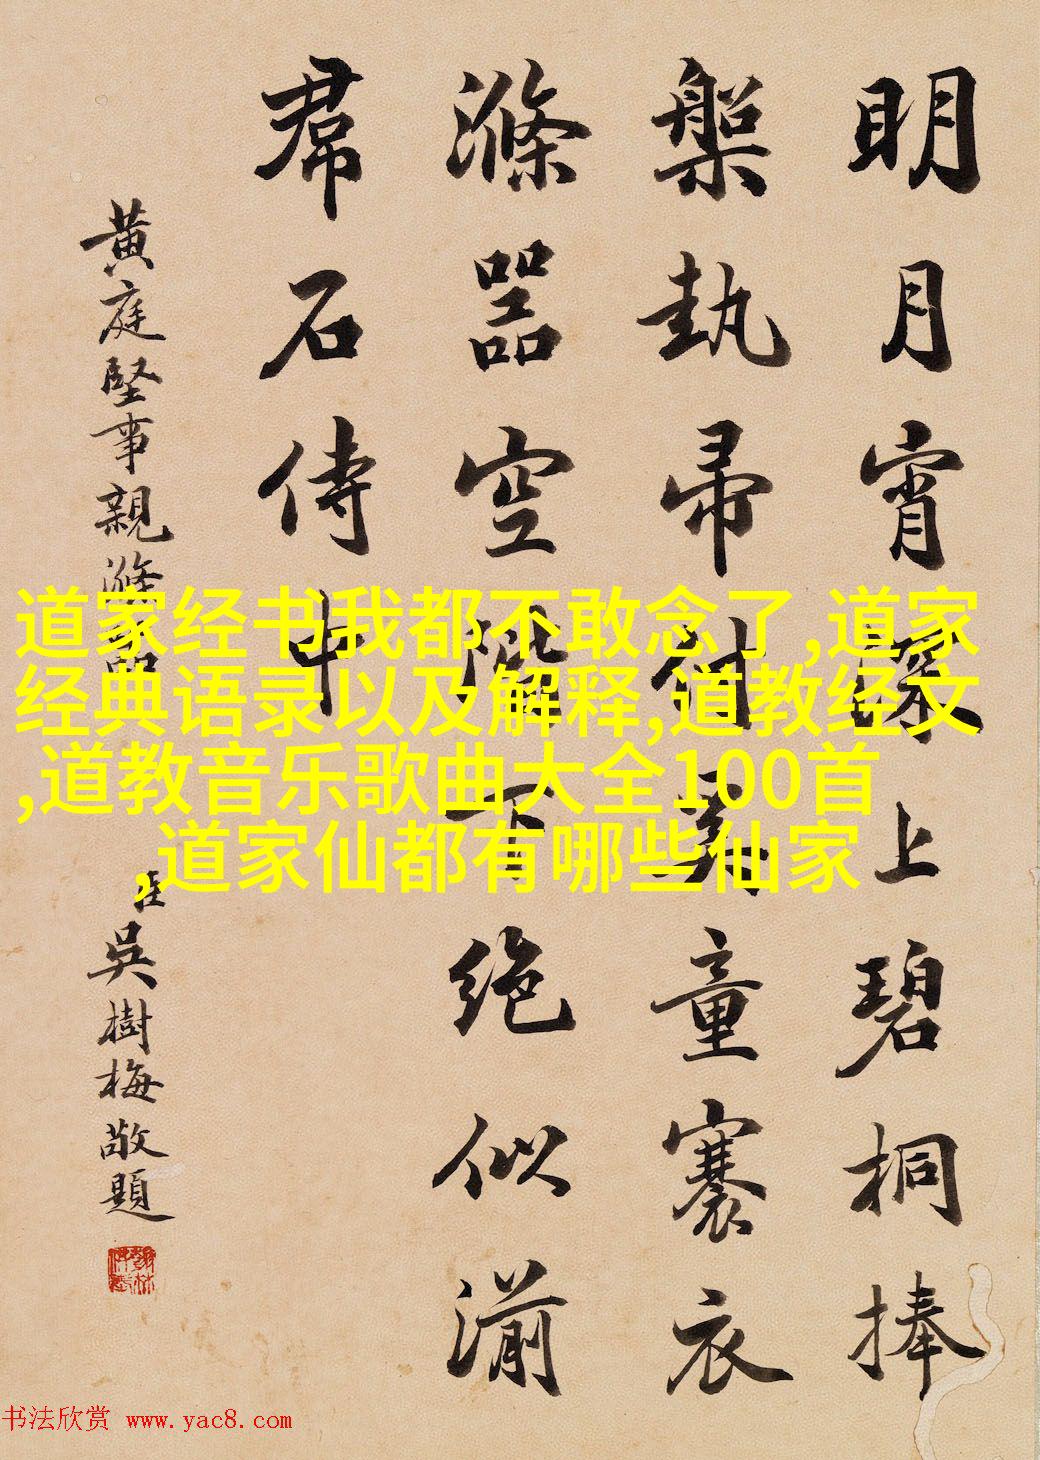 明月宵深上碧桐捧
槃執帚付奚童褰衣
滌器空階下絶似湔
帬石侍中
黄庭堅事親滌器
臣吳樹梅敬題
道家经书我都不敢念了,道家
经典语录以及解释,道教经文
,道教音乐歌曲大全100首
,道家仙都有哪些仙家
书法欣赏 www.yac8.com